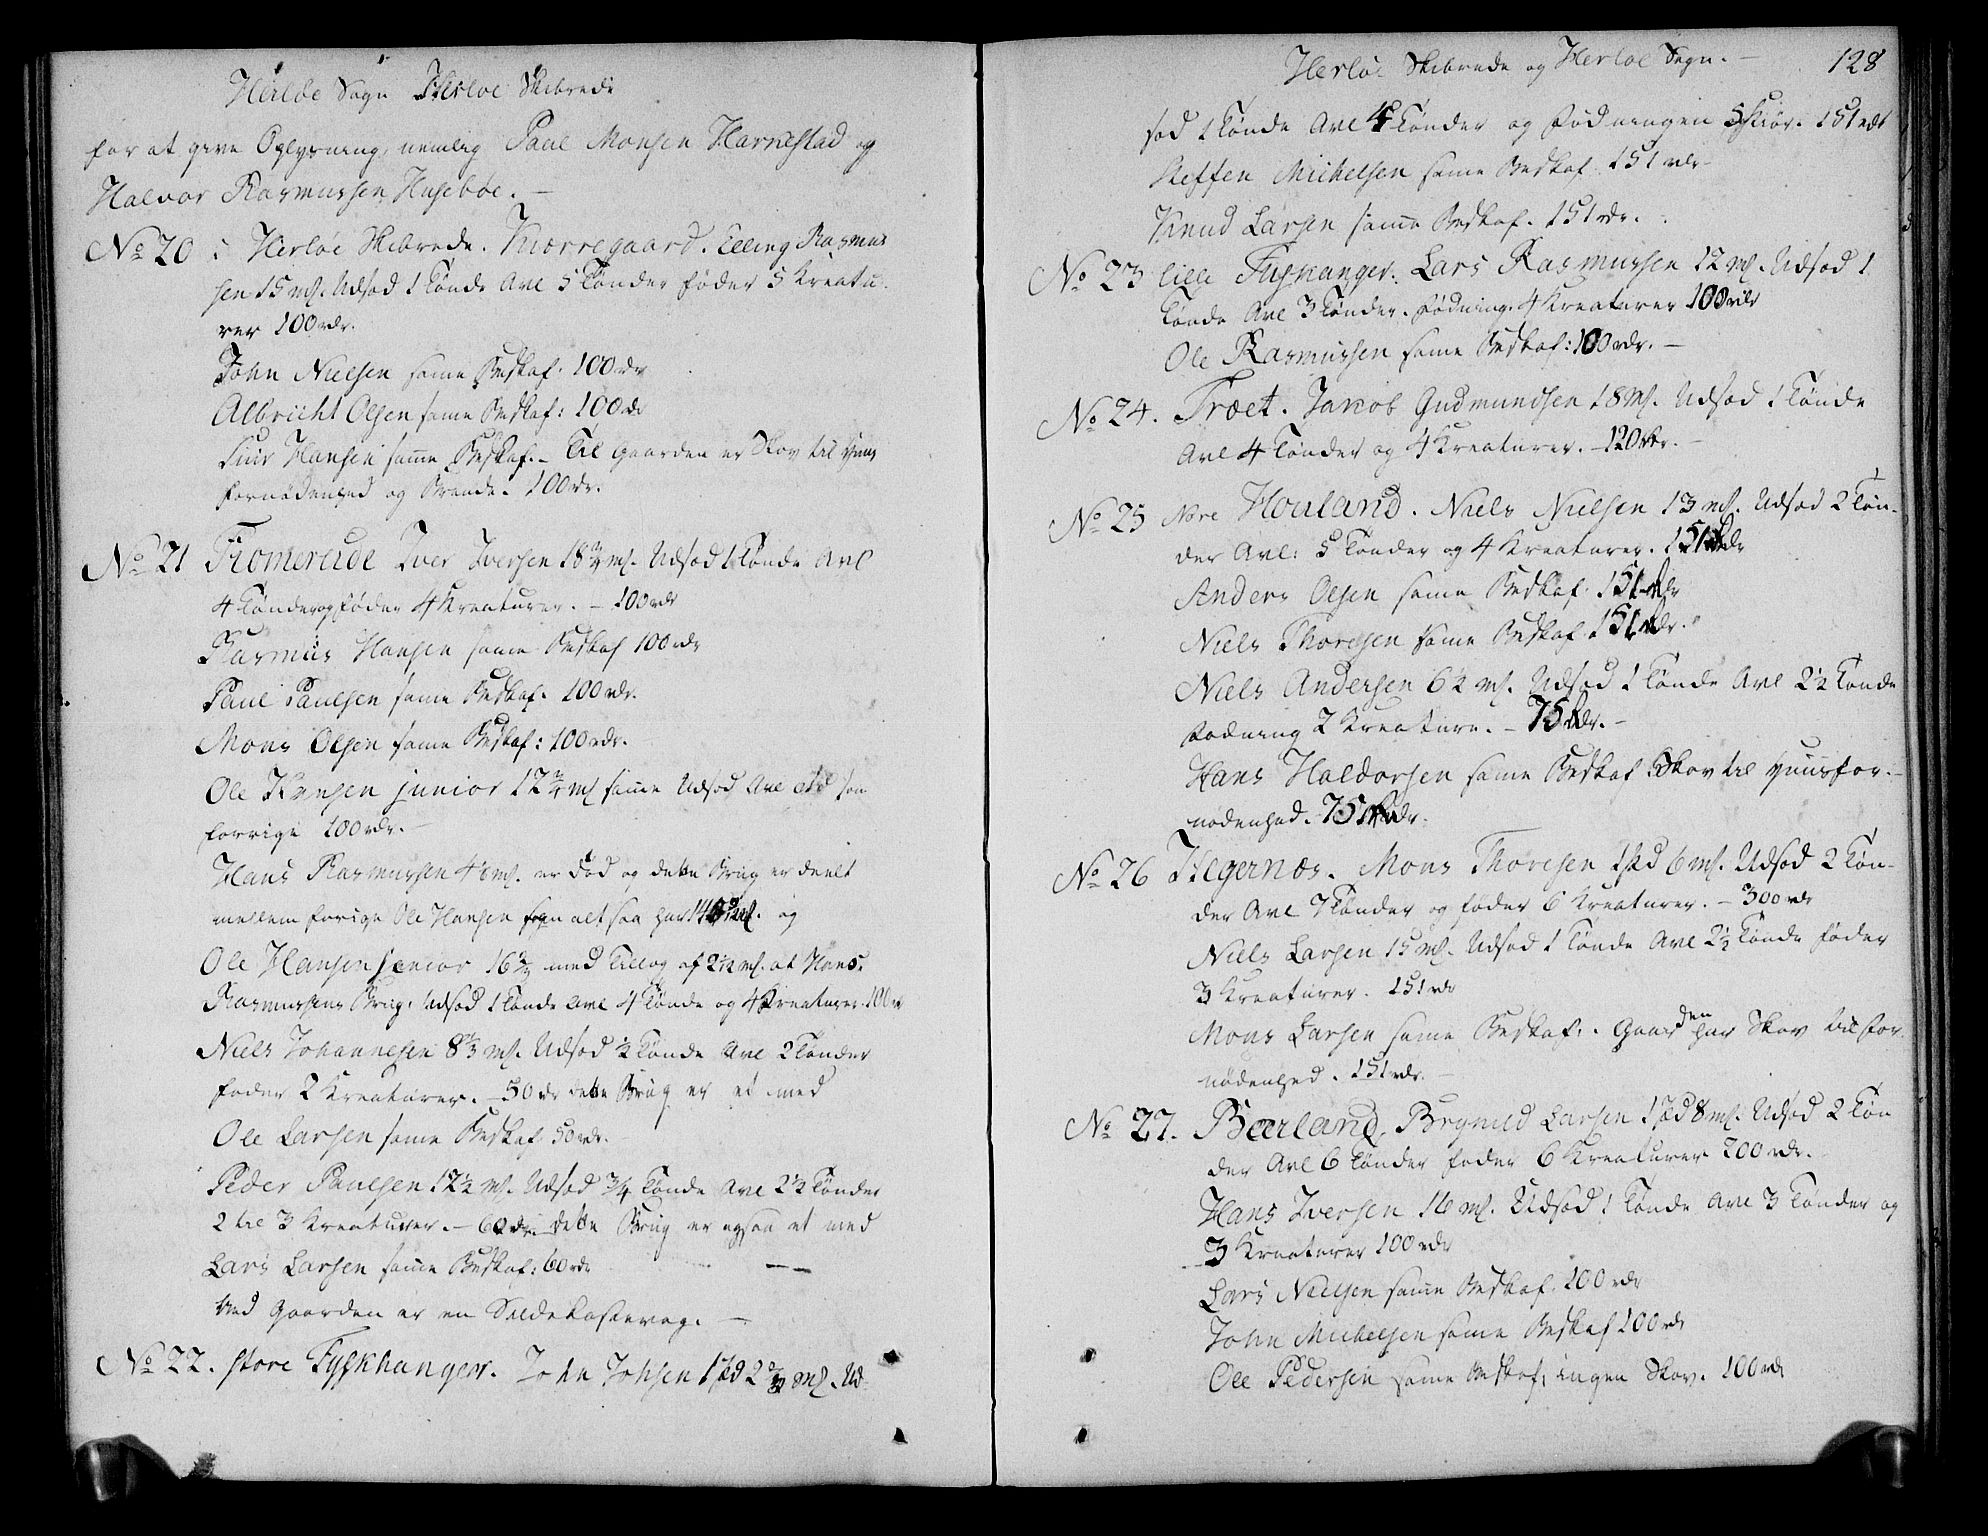 Herløe Sogn Herløe Skibrede
for at give Oplysning, nemlig Paul Monsen Harkestad og
Halvor Rasmussen Husebøe. —
No 20 i Herløe Skibrede. Kværregaard. Elling Rasmus
sen 15 ml. Udsæd 1 Tønde Avl 5 Tønder føder 5 Kreatu-
rer 100 rdr.
John Nielsen same Beskaf. 100 rdr
Albricht Olsen same Beskaf: 100 rdr
Siur Hansen same Beskaf. – Til Gaarden er Skov til Huus
fornødenhed og Brende. 100 rdr.
No 21 Fromereide Iver Iversen 18 3/4 ml. Udsæd 1 Tønde Avl
4 Tønder og føder 4 Kreaturer. – 100 rdr
Rasmus Hansen same Beskaf 100 rdr
Paul Paulsen same Beskaf. 100 rdr.
Mons Olsen same Beskaf: 100 rdr.
Ole Hansen junior 12 3/4 ml same Udsæd Avl etc som
forrige 100 rdr. –
Hans Rasmussen ml. er død og dette Brug er deelt
mellem forige Ole Hansen som altsaa har ml. og
Ole Hansen senior 16 med Tillæg af 2 1/2 ml. af Hans
Rasmussens Brug. Udsæd 1 Tønde Avl 4 Tønde og 4 Kreaturer. 100 r
Niels Johannesen 8 1/3 ml. Udsæd 1/2 Tønde Avl 2 Tønder
føder 2 Kreaturer. – 50 rdr dette Brug er et med
Ole Larsen same Beskaf. 50 rdr.
Peder Paulsen 12 1/2 ml. Udsæd 3/4 Tønde Avl 2 1/2 Tønder
2 til 3 Kreaturer. – 60 rdr. – dette Brug er ogsaa et med
Lars Larsen same Beskaf: 60 rdr
Ved Gaarden er en Silde kastevaag. —
No 22. store Fyskhanger. John Johsen 1 pd 2 ml. Ud-
Herløe Skibrede og Herløe Sogn. – 128
sæd 1 Tønde Avl 4 Tønder og Fødningen 5 Kiør. 151 rdr
Steffen Michelsen same Beskaf. 151 rdr
Knud Larsen same Beskaf. 151 rdr.
No 23 lille Fiskanger. Lars Rasmussen 12 ml. Udsæd 1
Tønde Avl 3 Tønder. Fødning. 4 Kreaturer 100 rdr
Ole Rasmussen same Beskaf: 100 rdr. –
No 24. Træet. Jakob Gudmundsen 18 ml. Udsæd 1 Tønde
Avl 4 Tønder og 4 Kreaturer. – 120 rdr. –
No 25 Nore Houland. Niels Nielsen 13 ml. Udsæd 2 Tøn-
der Avl: 5 Tønder og 4 Kreaturer. 151 rdr
Anders Olsen same Beskaf. 151 rdr
Niels Thoresen same Beskaf 151 rdr.
Niels Andersen 6 1/2 ml. Udsæd 1 Tønde Avl 2 1/2 Tønde
Fødning 2 Kreature. – 75 rdr. –
Hans Haldorsen same Beskaf. Skov til Huusfor-
nødenhed. 75 rdr.
No 26 Hegernæs. Mons Thoresen 1 pd 6 ml. Udsæd 2 Tøn-
der Avl 7 Tønder og føder 6 Kreaturer. – 300 rdr
Niels Larsen 15 ml. Udsæd 1 Tønde Avl 2 1/2 Tønde føder
3 Kreaturer. 151 rdr
Mons Larsen same Beskaf. Gaarden har Skov til for-
nødenhed. 151 rdr. –
No 27. Bærland, Brynild Larsen 1 pd 8 ml. Udsæd 2 Tøn
der Avl 6 Tønder føder 6 Kreaturer 200 rdr.
Hans Iversen 16 ml. Udsæd 1 Tønde Avl 3 Tønder og
3 Kreaturer 100 rdr
Lars Nielsen same Beskaf. 100 rdr
John Michelsen same Beskaf 100 rdr
Ole Pedersen same Beskaf, ingen Skov. 100 rdr